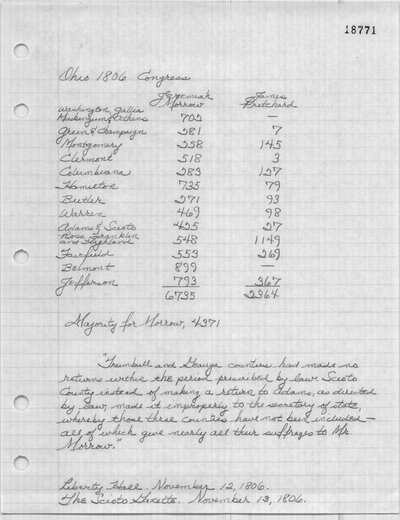 18771
Ohio 1806 Congress
Jeremiah James
Morrow Pritchard
Washington, Gallia
Muskingum & Athens 702 —
Green & Champaign 281 7
Montgomery 258 145
Clermont 518 3
Columbiana 283 127
Hamilton 735 79
Butler 271 93
Warren 469 98
Adams & Scioto 425 27
Ross, Franklin
and Highland 548 1149
Fairfield 553 269
Belmont 899 —
Jefferson 793 367
6735 2364
Majority for Morrow, 4371
"Trumbull and Geauga counties had made no
returns within the period prescribed by law. Scioto
County instead of making a return to Adams, as directed
by law, made it improperly to the secretary of state,
whereby those three counties have not been included—
all of which give nearly all their suffrages to Mr.
Morrow."
Liberty Hall. November 12, 1806.
The Scioto Gazette. November 13, 1806.